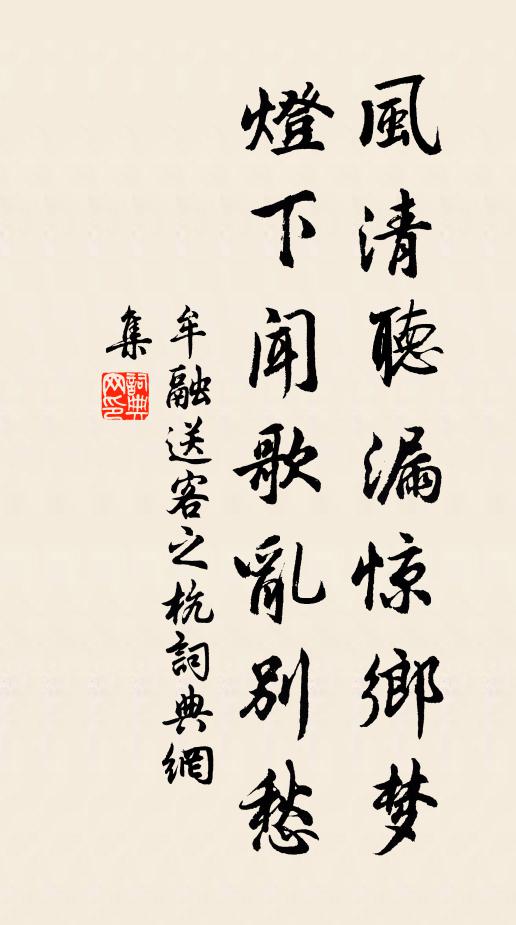 風清聽漏惊鄉梦
燈下闻歌亂別愁
牟融送客之杭詞典網
集
詞典
网印